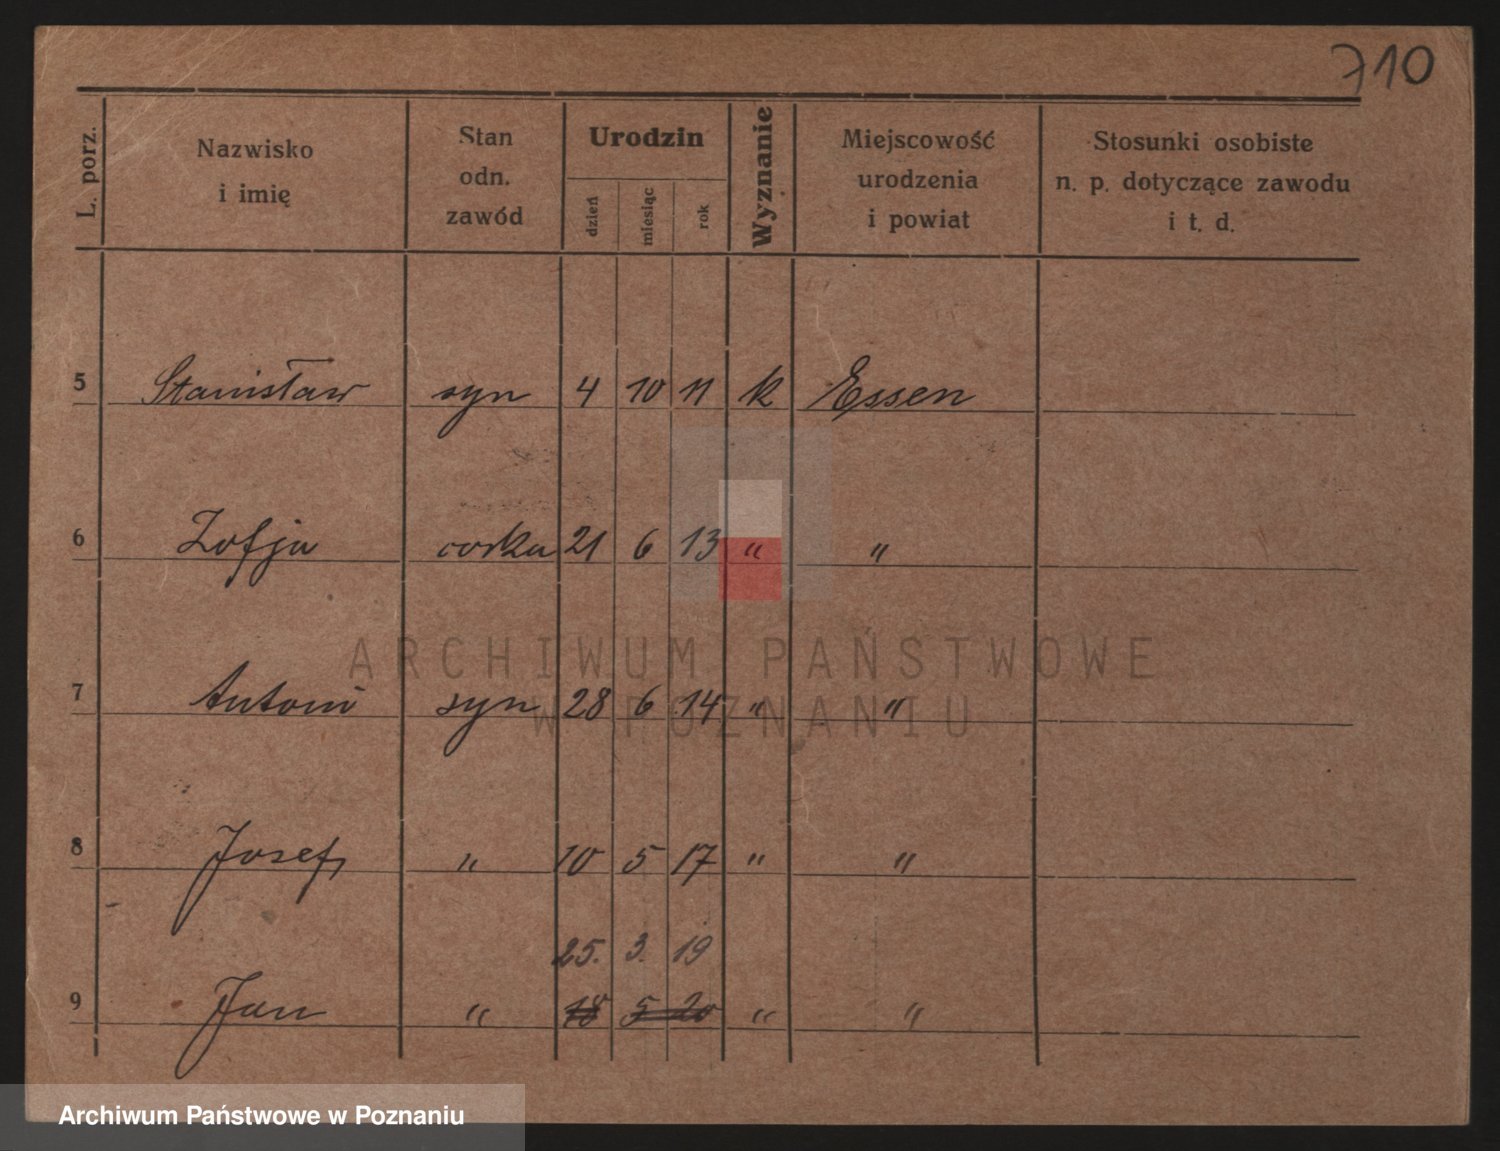 710
L. porz.
Nazwisko i imię
Stan odn. zawód
Urodzin
dzień
miesiąc
rok
Wyznanie
Miejscowość urodzenia i powiat
Stosunki osobiste n. p. dotyczące zawodu i t. d.
5 Stanisław syn 4 10 11 k Essen
6 Zofja corka 21 6 13 " "
7 Antoni syn 28 6 14 " "
8 Josef " 10 5 17 " "
25. 3. 19
9 Jan " 18 5 20 " "
ARCHIWUM PAŃSTWOWE
W POZNANIU
Archiwum Państwowe w Poznaniu